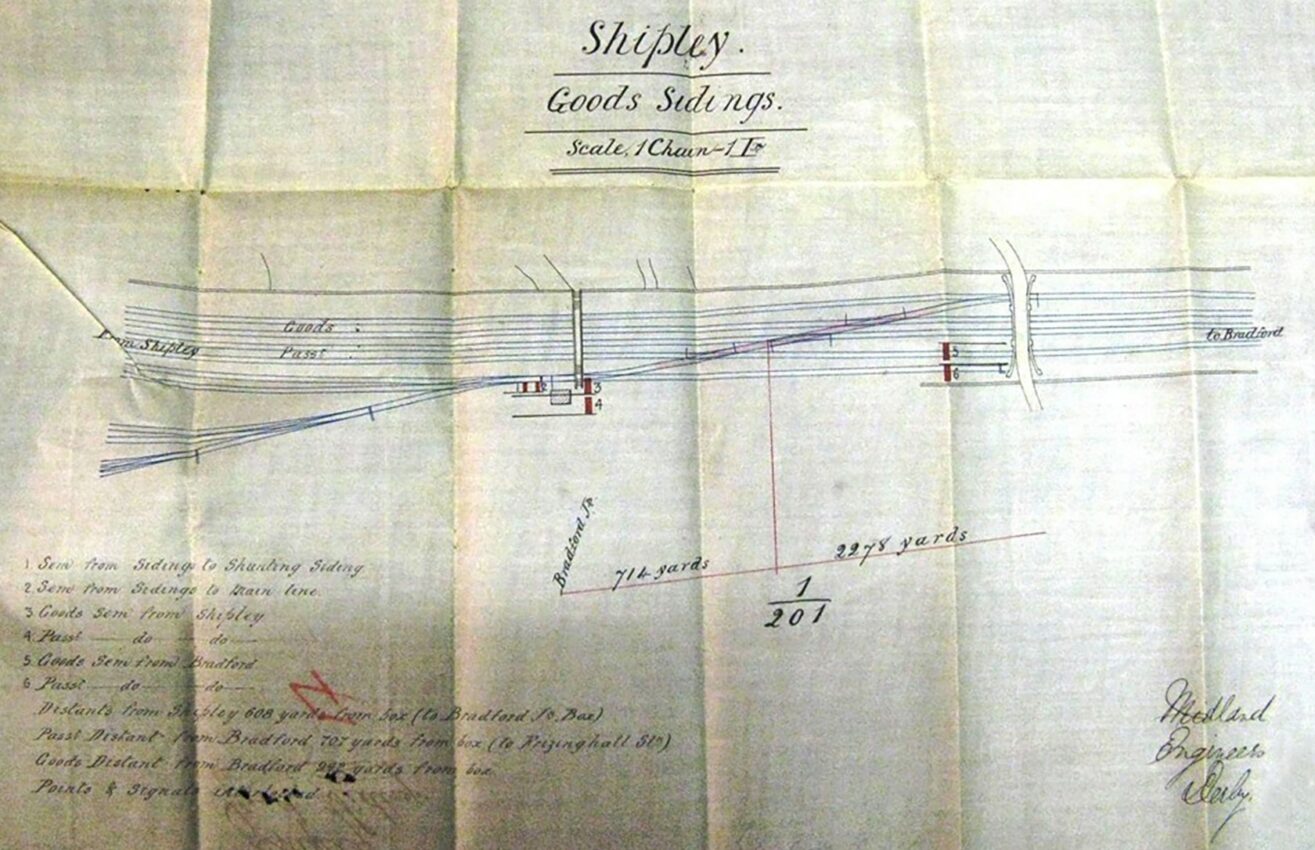 Shipley.
Goods Sidings.
Scale, 1 Chain - 1 In
Goods
From Shipley
Passr
to Bradford
5
6
2
3
4
Bradford Jn
714 yards
2278 yards
1
201
1 Sem from Sidings to Shunting Siding
2 Sem from Sidings to Main line.
3 Goods Sem from Shipley
4 Passr do do
5 Goods Sem from Bradford
6 Passr do do
Distants from Shipley 608 yards from box (to Bradford Jn Box)
Passr Distant from Bradford 707 yards from box (to Frizinghall Stn)
Goods Distant from Bradford yards from box
Points & Signals
Midland
Engineers
Derby.